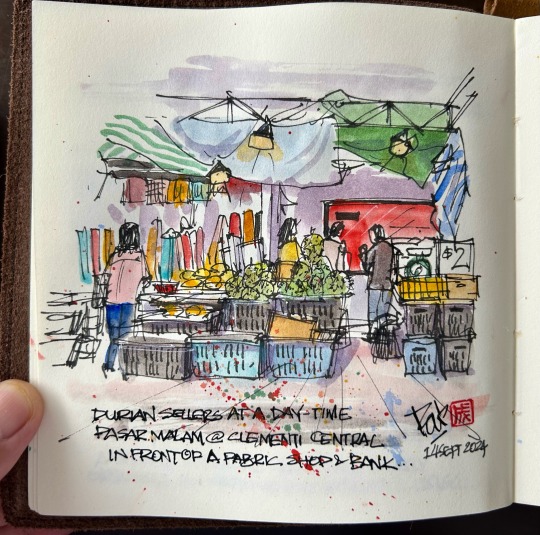 $2
DURIAN SELLERS AT A DAY-TIME
PASAR MALAM @ CLEMENTI CENTRAL
IN FRONT OF A FABRIC SHOP & BANK...
14 SEPT 2024